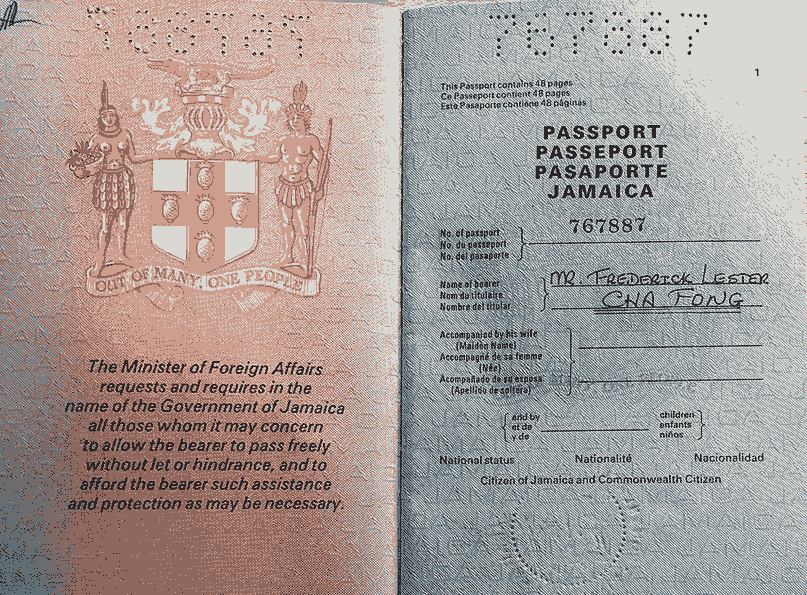 OUT OF MANY, ONE PEOPLE
The Minister of Foreign Affairs
requests and requires in the
name of the Government of Jamaica
all those whom it may concern
to allow the bearer to pass freely
without let or hindrance, and to
afford the bearer such assistance
and protection as may be necessary.
767887
1
This Passport contains 48 pages
Ce Passeport contient 48 pages
Este Pasaporte contiene 48 páginas
PASSPORT
PASSEPORT
PASAPORTE
JAMAICA
No. of passport
No. du passeport
No. del pasaporte
767887
Name of bearer
Nom du titulaire
Nombre del titular
MR FREDERICK LESTER
CHA FONG
Accompanied by his wife
(Maiden Name)
Accompagné de sa femme
(Née)
Acompañado de su esposa
(Apellido de soltera)
and by
et de
y de
children
enfants
niños
National status Nationalité Nacionalidad
Citizen of Jamaica and Commonwealth Citizen